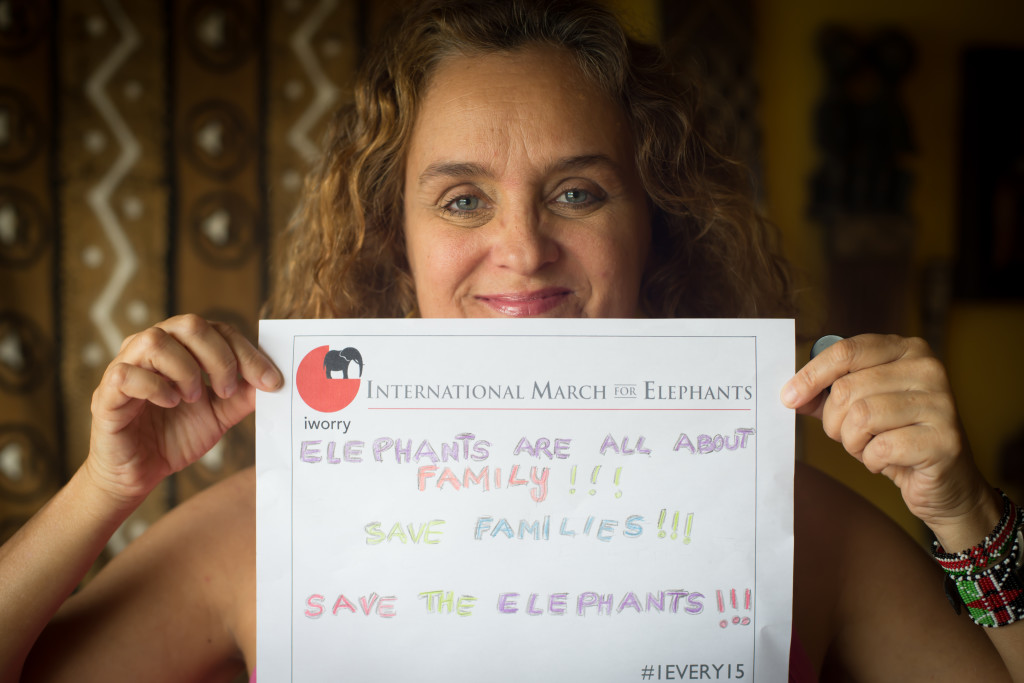 INTERNATIONAL MARCH FOR ELEPHANTS
iworry
ELEPHANTS ARE ALL ABOUT
FAMILY!!!
SAVE FAMILIES!!!
SAVE THE ELEPHANTS!!!
#1EVERY15